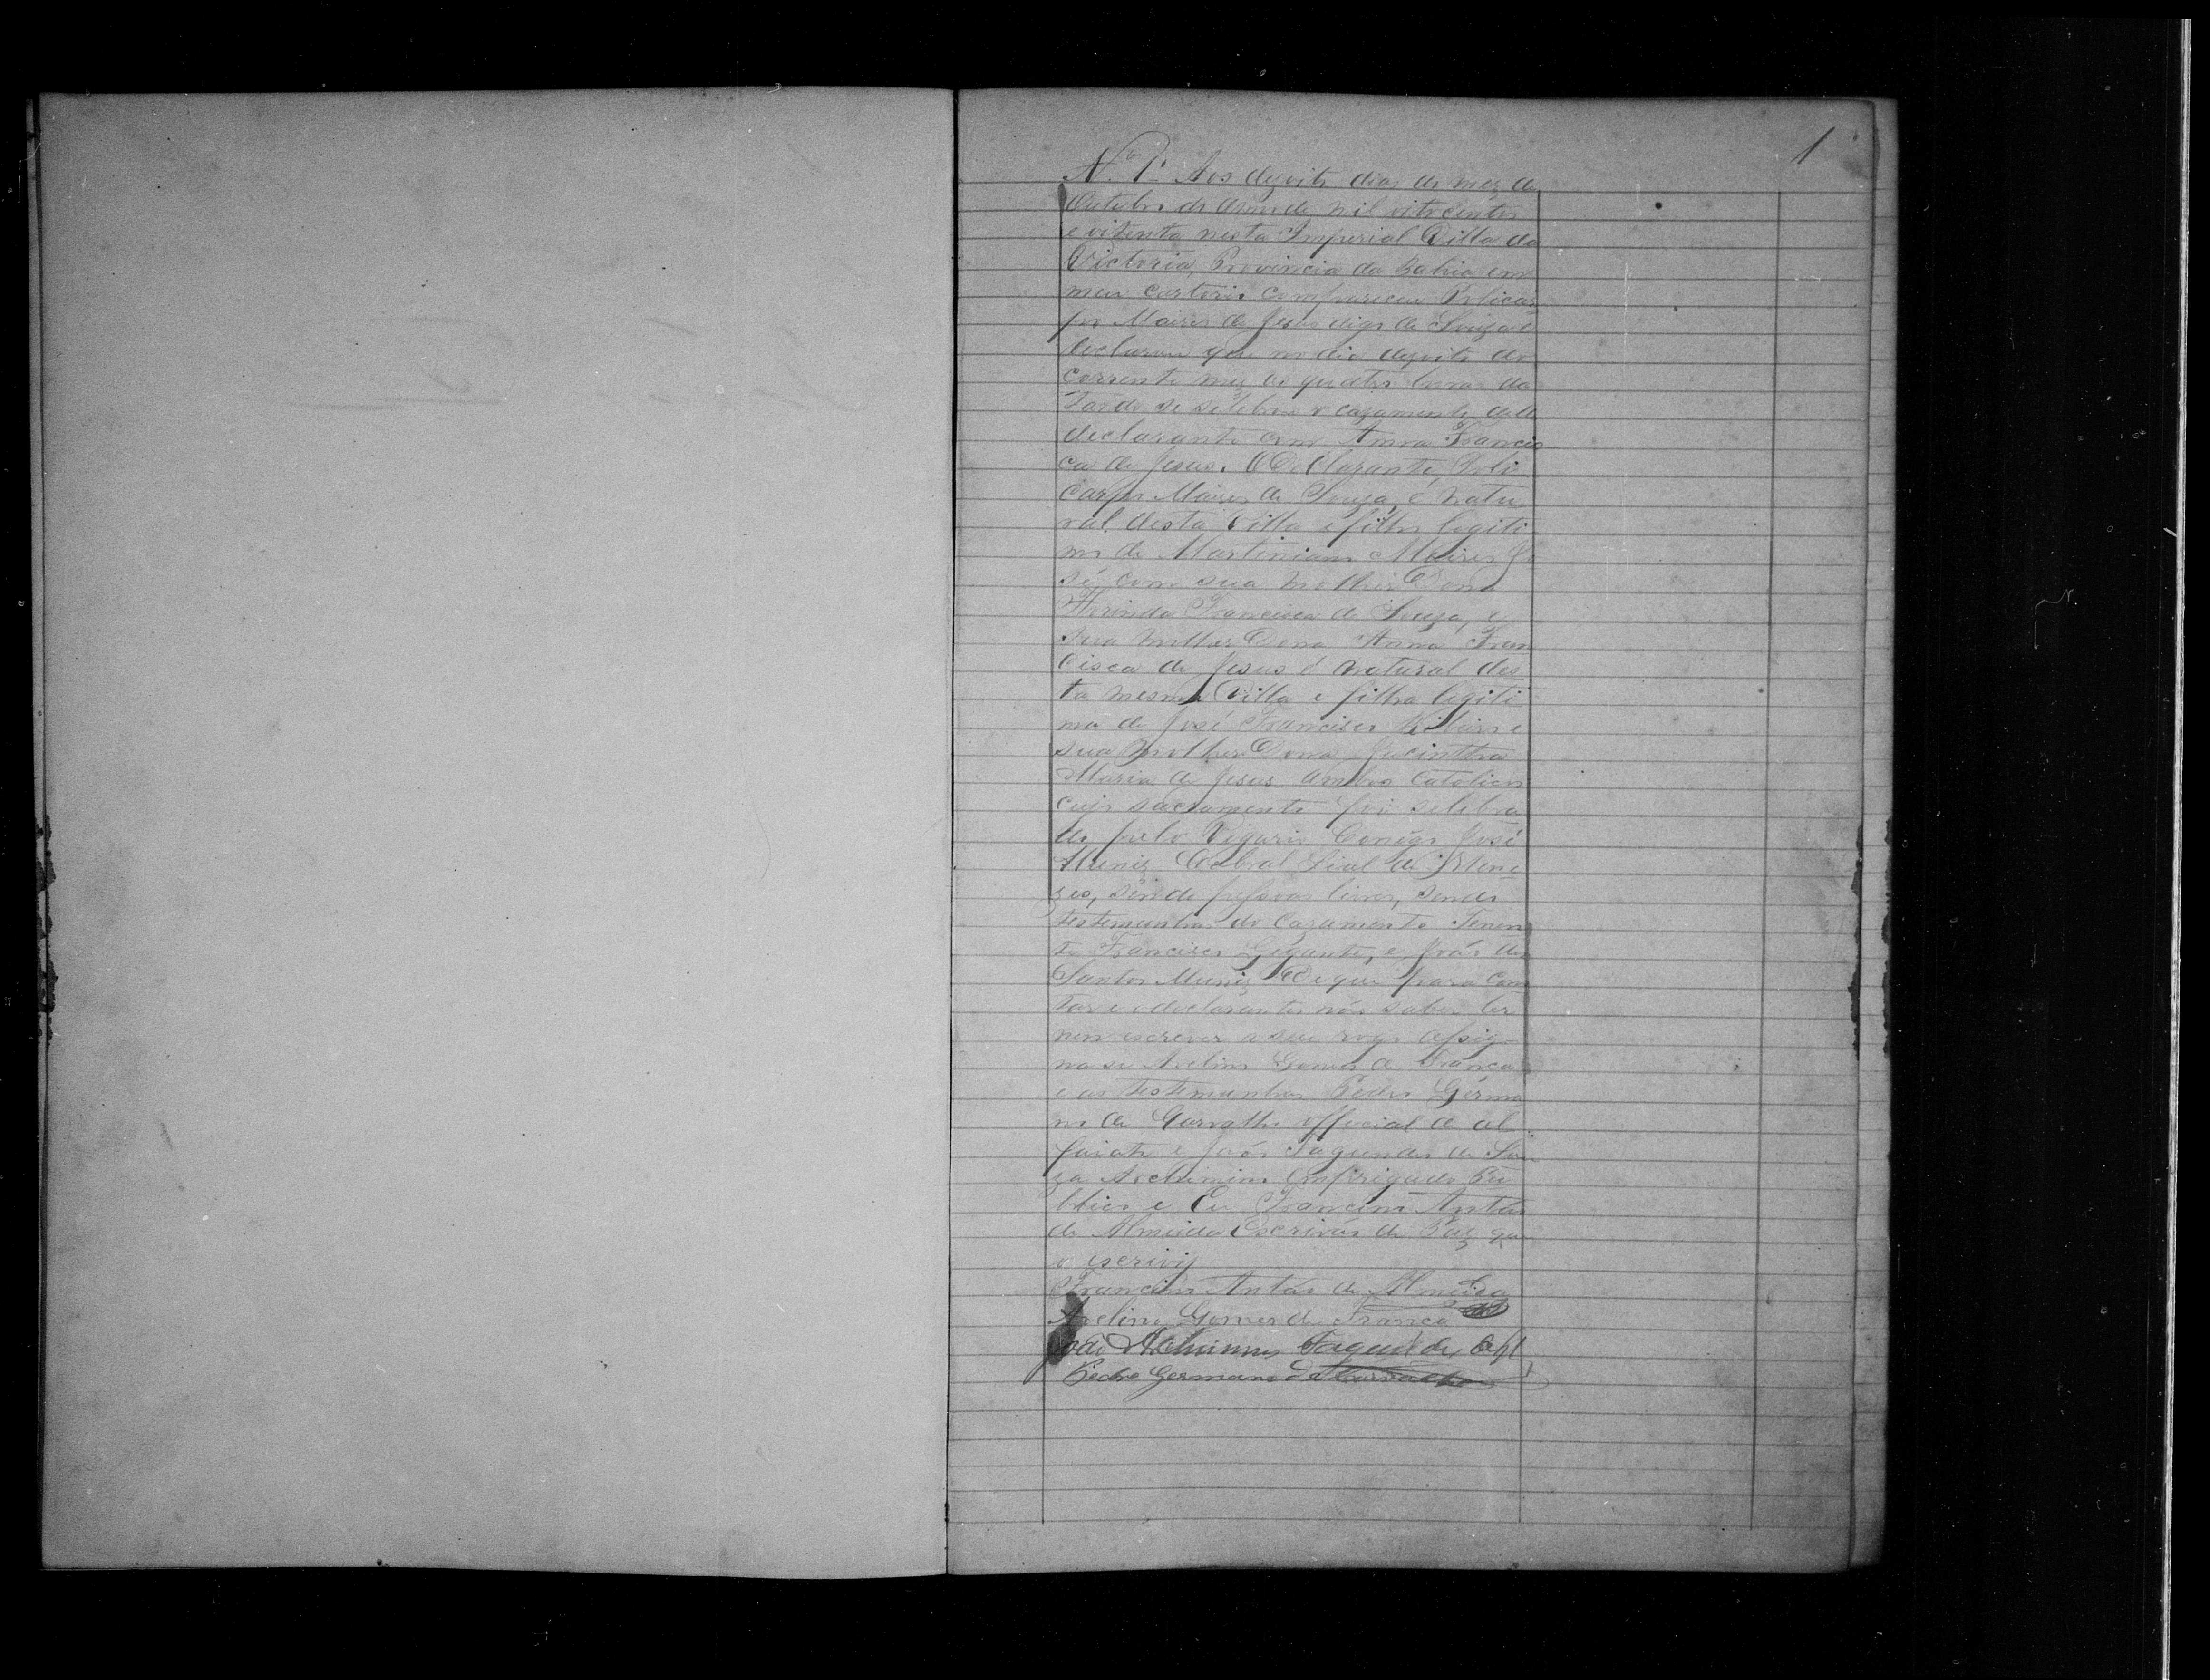 1
N.º 1º Aos dezoito dias do mez de
Outubro do Anno de mil oitocentos
e oitenta nesta Imperial Villa da
Victoria, Provincia da Bahia em
meu cartorio compareceu Policar
po Maires de Jesus digo de Souza e
declarou que no dia dezoito do
corrente mez as quatro horas da
tarde se selebrou o cazamento delle
declarante com Anna Francis
ca de Jesus. O Declarante, Poli
carpo Maires de Souza, é natu
ral desta Villa e filho legiti
mo de Martiniano Maires Jo
sé, com sua molher Dona
Florinda Francisca de Souza, e
sua molher Dona Anna Fran
cisca de Jesus é natural des
ta mesma Villa e filha legiti
ma de José Francisco e
sua molher Dona Jacinttra
Maria de Jesus ambos Catolicos
cujo sacramento foi selebra
do pelo Vigario Conego José
Muniz Cabral Leal de Mene
zes, sendo pessoas livres, sendo
testemunhas do cazamento Tenen
te Francisco Gigante, e João dos
Santos Muniz De que para cons
tar e o declarante não saber ler
nem escrever a seu rogo assig
na se Avelino Gomes de França
e as testemunhas Pedro Germa
no de Carvalho official de al
faiate e João Fagundes de Sou
za Archimino Empregado Pu
blico e Eu Francino Antão
de Almeida Escrivão de Paz que
o escrivy
Francino Antão de Almeida
Avelino Gomes de França
João Fagundes
Pedro Germano de Carvalho